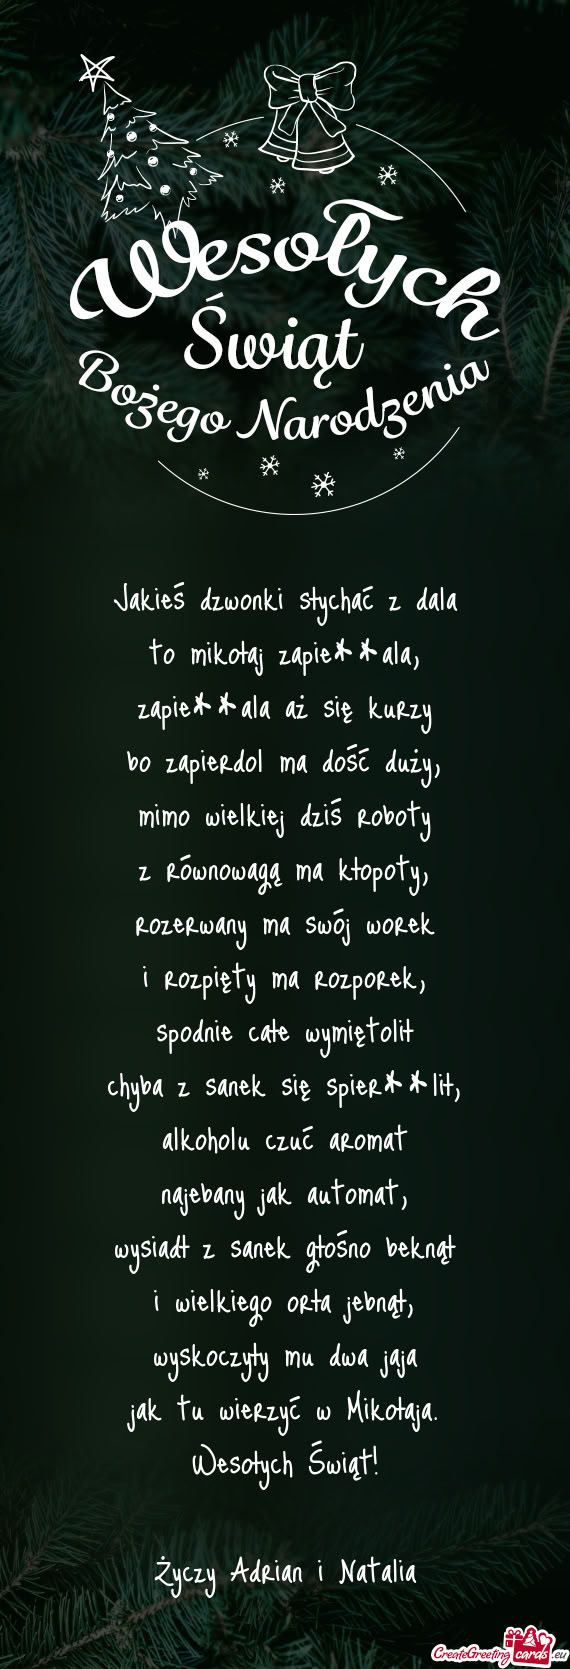 Wesołych
Świąt
Bożego Narodzenia
Jakieś dzwonki słychać z dala
to mikołaj zapie**ala,
zapie**ala aż się kurzy
bo zapierdol ma dość duży,
mimo wielkiej dziś roboty
z równowagą ma kłopoty,
rozerwany ma swój worek
i rozpięty ma rozporek,
spodnie całe wymiętolił
chyba z sanek się spier**lił,
alkoholu czuć aromat
najebany jak automat,
wysiadł z sanek głośno beknął
i wielkiego orła jebnął,
wyskoczyły mu dwa jaja
jak tu wierzyć w Mikołaja.
Wesołych Świąt!
Życzy Adrian i Natalia
CreateGreetingcards.eu